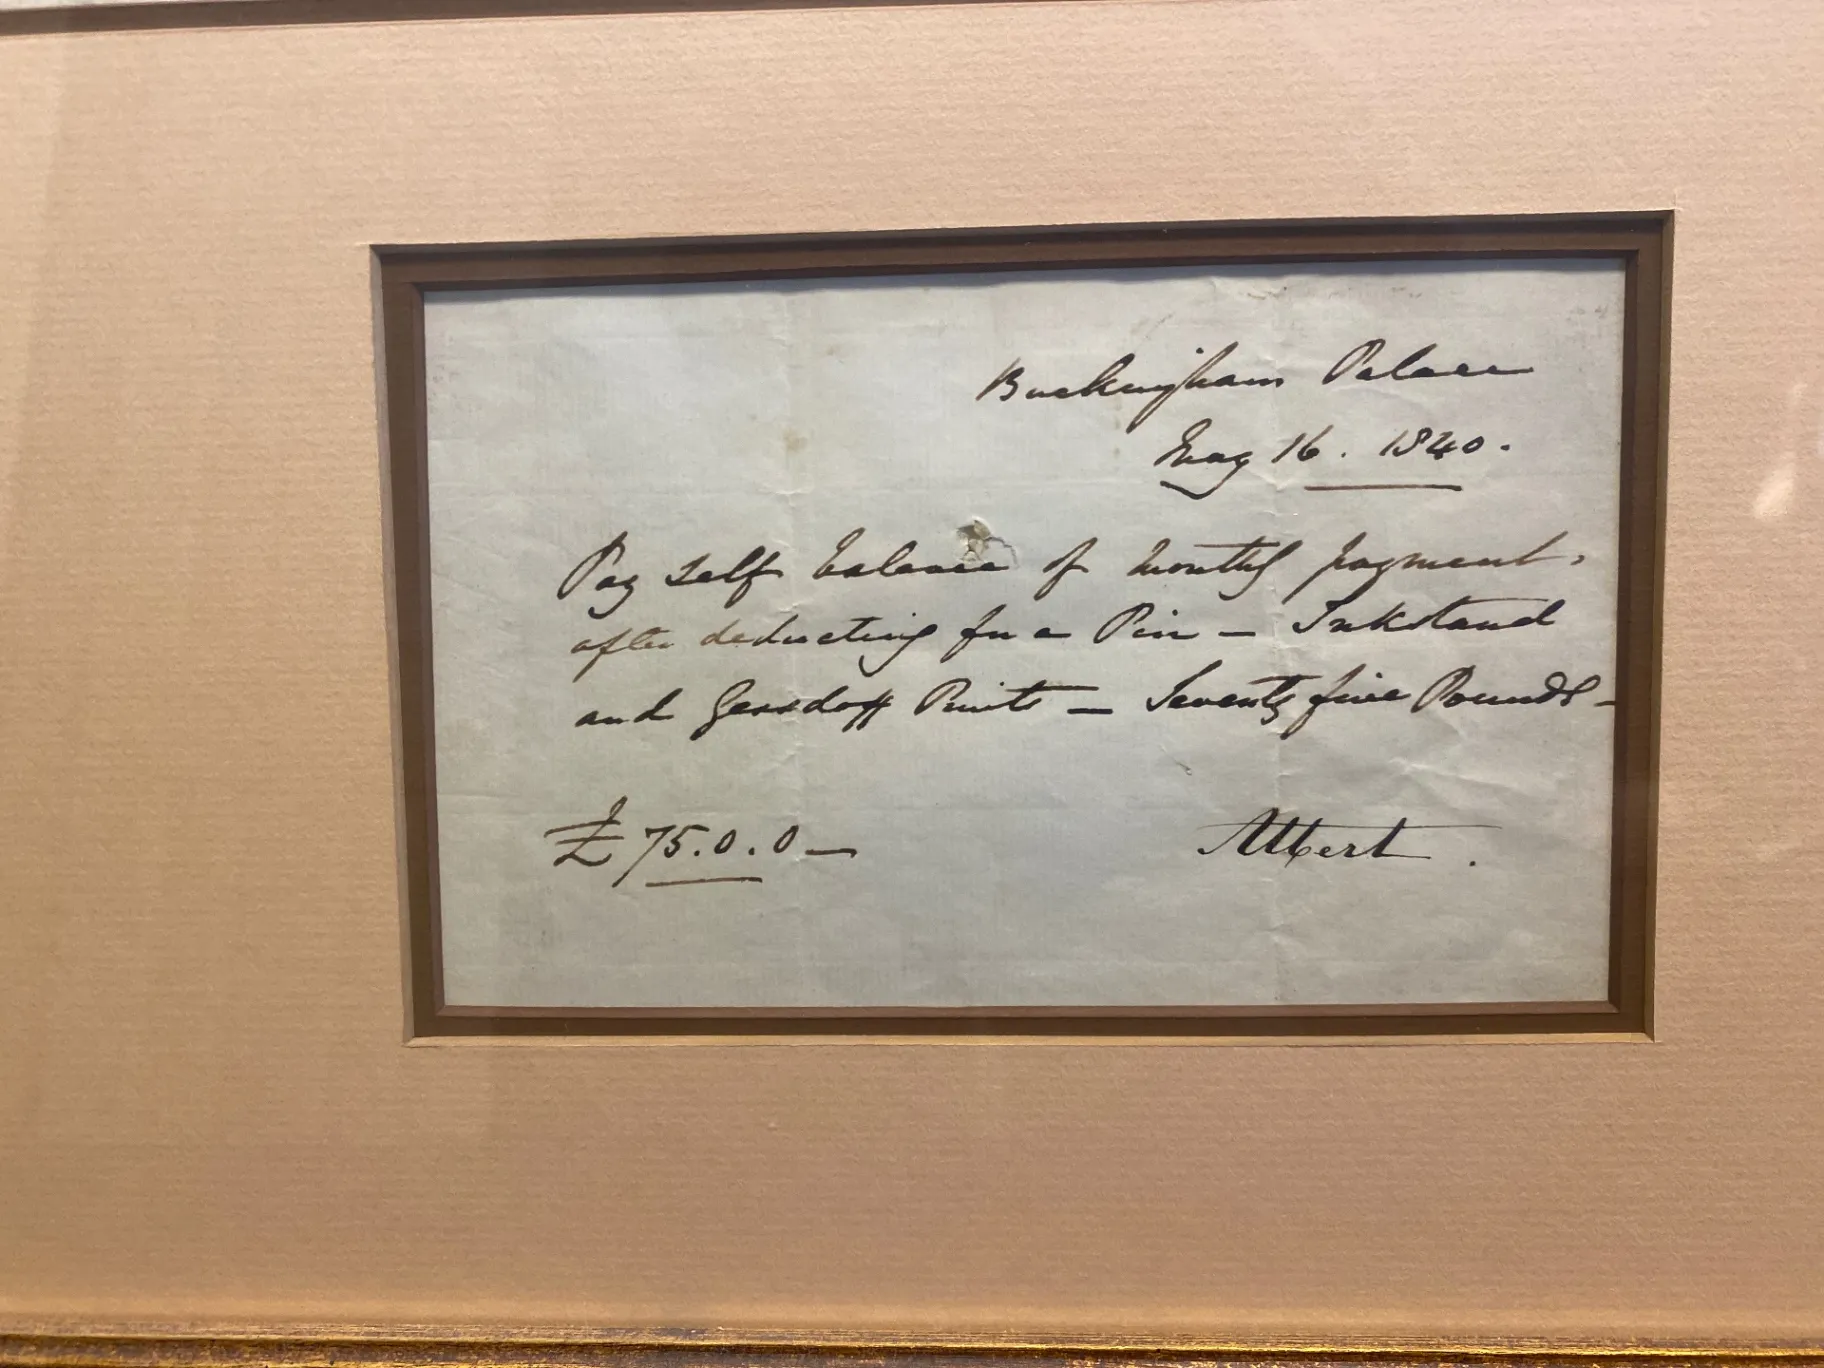 Buckingham Palace
May 16. 1840.
Pay self balance of monthly payment,
after deducting for a Pin – Inkstand
and Prints – Seventy five Pounds –
£75.0.0 –
Albert.